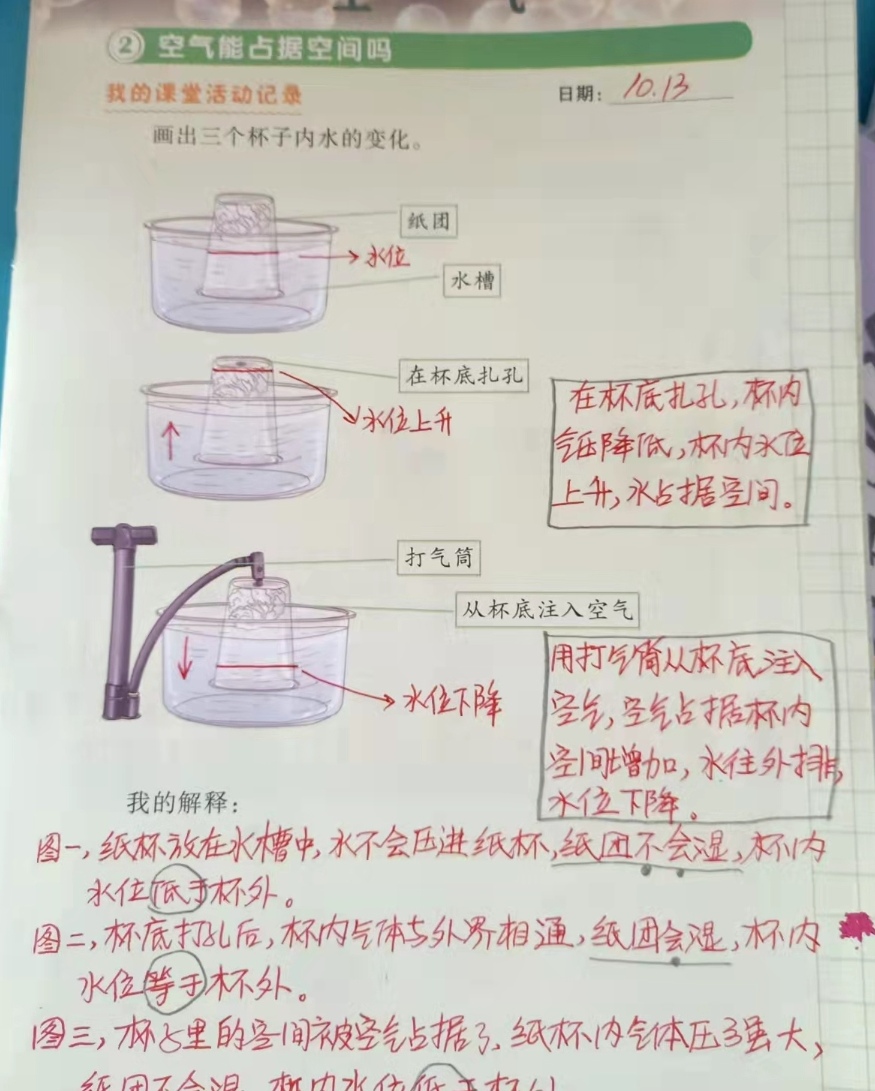 ② 空气能占据空间吗
我的课堂活动记录
日期：10.13
画出三个杯子内水的变化。
纸团
水位
水槽
在杯底扎孔
水位上升
在杯底扎孔，杯内
气压降低，杯内水位
上升，水占据空间。
打气筒
从杯底注入空气
水位下降
用打气筒从杯底注入
空气，空气占据杯内
空间增加，水往外排，
水位下降。
我的解释：
图一，纸杯放在水槽中，水不会压进纸杯，纸团不会湿，杯内
水位低于杯外。
图二，杯底打孔后，杯内气体与外界相通，纸团会湿，杯内
水位等于杯外。
图三，杯子里的空间被空气占据了，纸杯内气体压强大，
纸团不会湿，杯内水位低于杯外